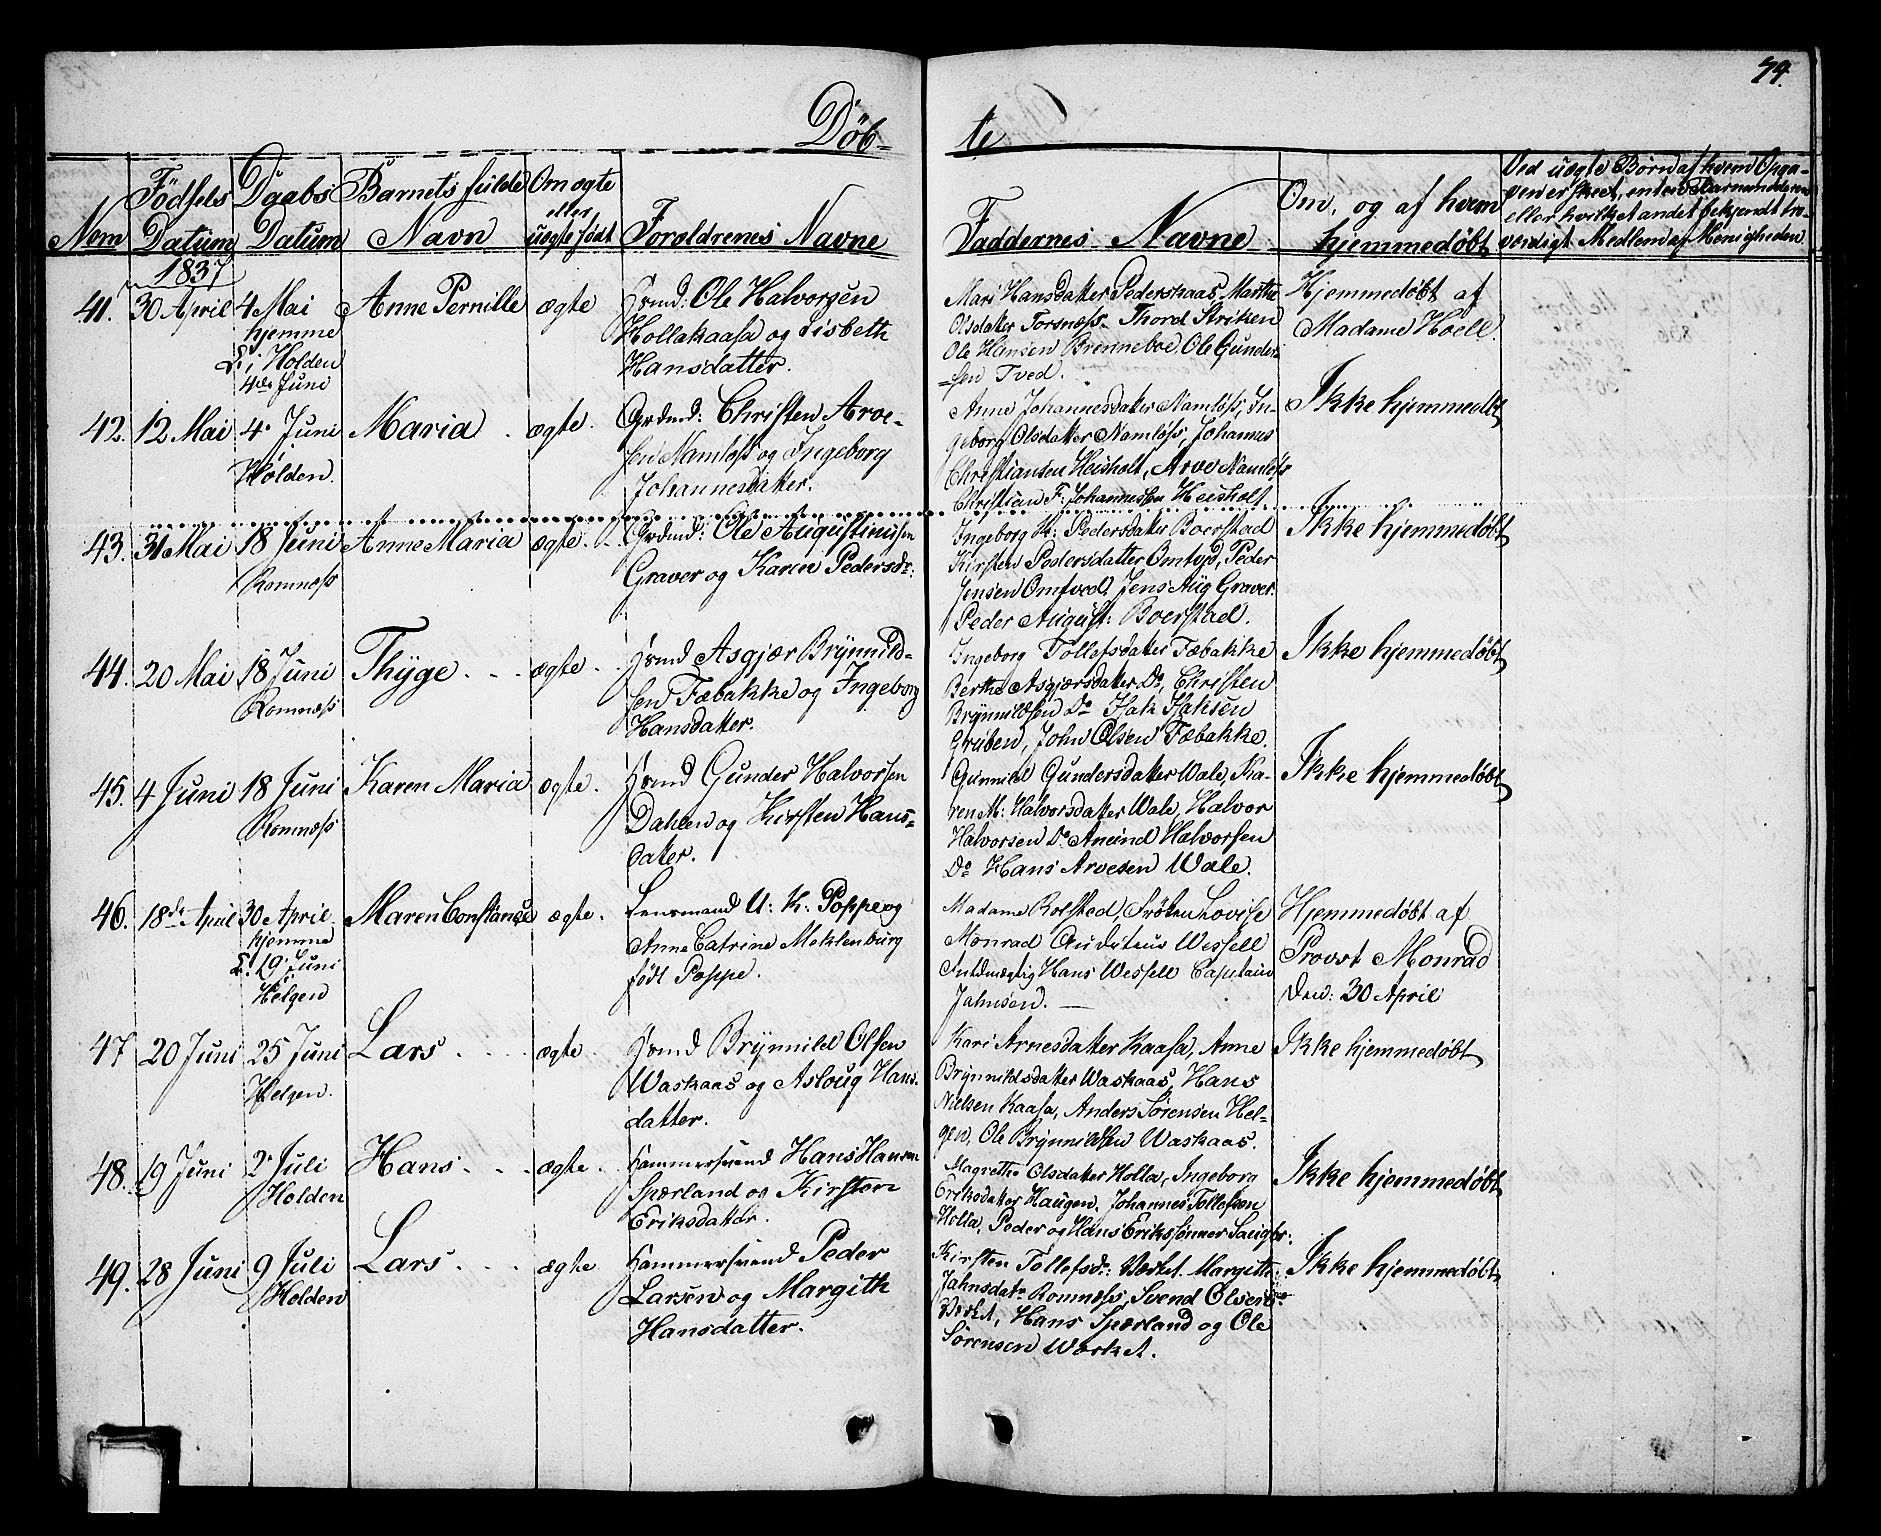 74.
Døb-
te
Nom
Födsels Datum
Daabs Datum
Barnets fulde Navn
Om ægte eller uægte födt
Foræeldrenes Navne
Faddernes Navne
Om, og af hvem hjemmedøbt
Ved uægte Børn af hvem Opga-
ven er skeet, enten Barnemoderen
eller hvilket andet bekjendt tro-
værdigt Medlem af Menigheden.
1837
41. 30 April
4 Mai
hjemme
D. i Holden
4de Juni
Anne Pernille
ægte
Hrmd: Ole Halvorsen
Hollakaasa og Lisbeth
Hansdatter.
Mari Hansdatter Pederskaas, Marthe
Olsdatter Torsnæss- Thord Striken
Ole Hansen Brenneboe, Ole Gunder-
sen Tved.
Hjemmedøbt af
Madame Hoell.
42. 12 Mai
4. Juni
Holden.
Maria
ægte.
Grdmd: Christen Arve-
sen Namløss og Ingeborg
Johannesdatter.
Anne Johannesdatter Namløss, In-
geborg Olsdatter Namløss, Johannes
Christiansen Heisholt, Arve Namløss
Christian F: Johannessen Heisholt
Ikke hjemmedbt
43. 31 Mai
18 Juni
Romnæss
Anne Maria
ægte.
Grdmd: Ole Augustinussen
Graver og Karen Pedersdr:
Ingeborg K: Pedersdatter Boerstad
Kirsten Pedersdatter Omtvd, Peder
Jensen Omtved, Jens Aug Graver.
Peder August: Boerstad.
Ikke hjemmedøbt
44. 20 Mai
18 Juni
Romnæss
Thyge
ægte
Hrmd Asgjær Brynnild-
sen Fæbakke og Ingeborg
Hansdatter.
Ingeborg Tollefsdatter Fæbakke
Berthe Asgjærsdatter Do, Christen
Brynnildsen Do Isak Isaksen
Gruben, John Olsen Fæbakke.
Ikke hjemmedøbt
45. 4 Juni
18 Juni
Romnæss
Karen Maria
ægte.
Hrmd Gunder Halvorsen
Dahlen og Kirsten Hans-
datter.
Gunnild Gundersdatter Wale, Ka-
ren M: Halvorsdatter Wale, Halvor
Halvorsen Do Anund Halvorsen
Do Hans Arvesen Wale.
Ikke hjemmedøbt
46. 18de April
30 April
hjemme
D. 19 Juni
Helgen
Maren Constance
ægte.
Lensmand U: K: Poppe og
Anne Catrine Meklenburg
født Poppe.
Madame Rolsted, Frøken Lovise
Monrad Auditeur Wessell
Fuldmægtig Hans Wessell Captain
Jahnsen.
Hjemmedøbt af
Provst Monrad
Den: 30 April
47 20 Juni
25 Juni
Helgen.
Lars
ægte.
Hrmd Brynnild Olsen
Waskaas og Asloug Hans-
datter.
Kari Arnesdatter Kaasa, Anne
Brynnildsdatter Waskaas, Hans
Nielsen Kaasa, Anders Sørensen Hel-
gen, Ole Brynnildsen Waskaas.
Ikke hjemmedøbt
48. 19 Juni
2. Juli
Holden
Hans
ægte
Hammersvend Hans Hansen
Spærland og Kirsten
Eriksdatter.
Magrethe Olsdatter Holla, Ingeborg
Eriksdatter Haugen, Johannes Tollefsen
Holla, Peder og Hans Erikssønner
Ikke hjemmedøbt
49. 28 Juni
9 Juli
Holden
Lars
ægte
Hammersvend Peder
Larsen og Margith
Hansdatter.
Kirsten Tollefsdr: Værket. Margithe
Jahnsdatr Romnæss, Svend Olsen
Værket, Hans Spærland og Ole
Sørensen Værket.
Ikke hjemmedøbt